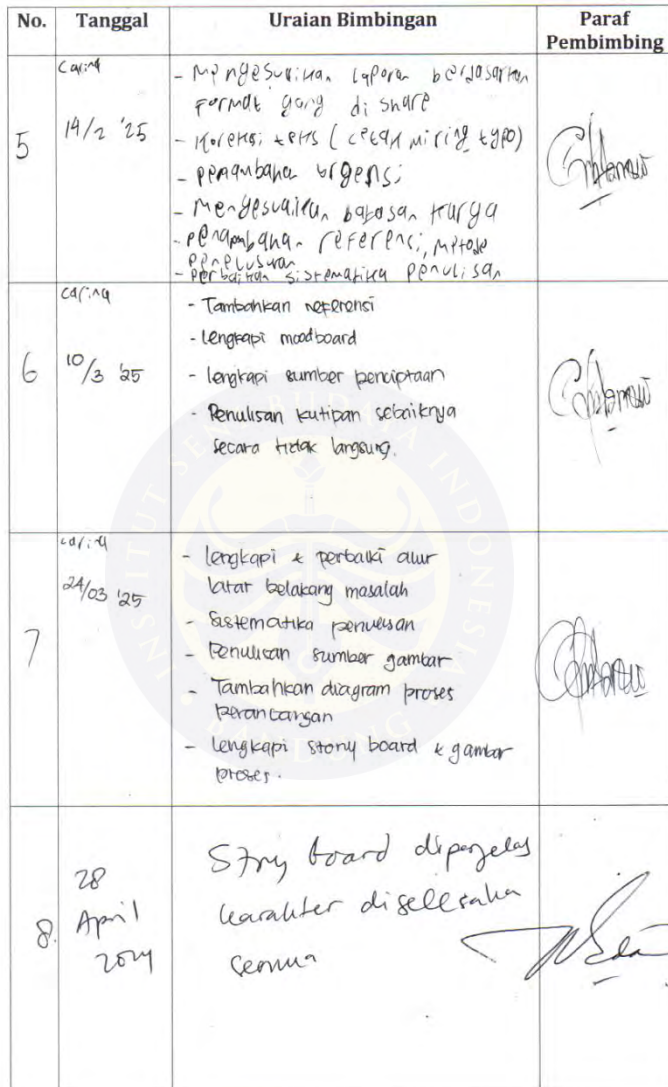 No. Tanggal Uraian Bimbingan Paraf Pembimbing
5
Caring
14/2 '25
- Mengesuaikan laporan berdasarkan
format yang di share
- Koreksi teks (cetak miring typo)
- penambahan urgensi
- Mengesuaikan batasan karya
- penambahan referensi, metode
penelusuran
- perbaikan sistematika penulisan
6
caring
10/3 '25
- Tambahkan referensi
- lengkapi moodboard
- lengkapi sumber penciptaan
- Penulisan kutipan sebaiknya
secara tidak langsung.
7
caring
24/03 '25
- lengkapi & perbaiki alur
latar belakang masalah
- Sistematika penulisan
- Penulisan sumber gambar
- Tambahkan diagram proses
perancangan
- lengkapi story board & gambar
proses.
8.
28
April
2024
Story board diperjelas
karakter diselesaika
semua
INSTITUT SENI BUDAYA INDONESIA
• BANDUNG •